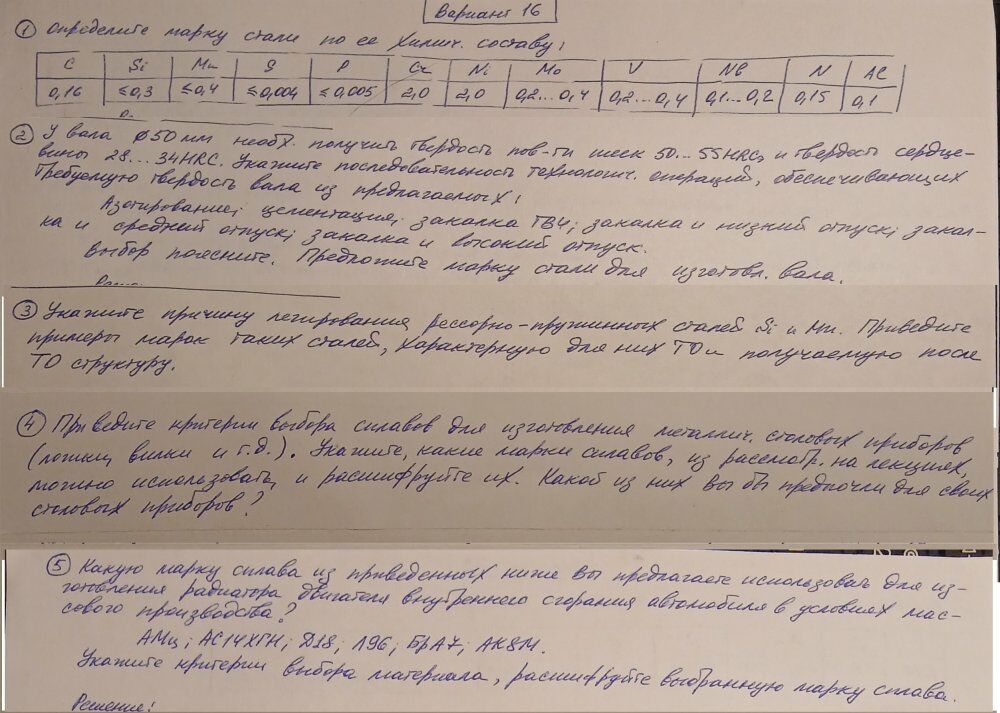 Вариант 16
① Определите марку стали по ее химич. составу:
C Si Mn S P Cr Ni Mo V Nb N Al
0,16 ≤0,3 ≤0,4 ≤0,004 ≤0,005 2,0 2,0 0,2...0,4 0,2...0,4 0,1...0,2 0,15 0,1
② У вала ⌀50 мм необх. получить твердость пов-ти шеек 50...55HRCэ и твердость сердце-
вины 28...34HRC. Укажите последовательность технологич. операций, обеспечивающих
требуемую твердость вала из предлагаемых:
Азотирование; цементация; закалка ТВЧ; закалка и низкий отпуск; закал-
ка и средний отпуск; закалка и высокий отпуск.
Выбор поясните. Предложите марку стали для изготовл. вала.
③ Укажите причину легирования рессорно-пружинных сталей Si и Mn. Приведите
примеры марок таких сталей, характерную для них ТО и получаемую после
ТО структуру.
④ Приведите критерии выбора сплавов для изготовления металлич. столовых приборов
(ложки, вилки и т.д.). Укажите, какие марки сплавов, из рассмотр. на лекциях,
можно использовать, и расшифруйте их. Какой из них вы бы предпочли для своих
столовых приборов?
⑤ Какую марку сплава из приведенных ниже вы предлагаете использовать для из-
готовления радиатора двигателя внутреннего сгорания автомобиля в условиях мас-
сового производства?
АМц; АС14ХГН; Д18; Л96; БрА7; АК8М.
Укажите критерии выбора материала, расшифруйте выбранную марку сплава.
Решение: